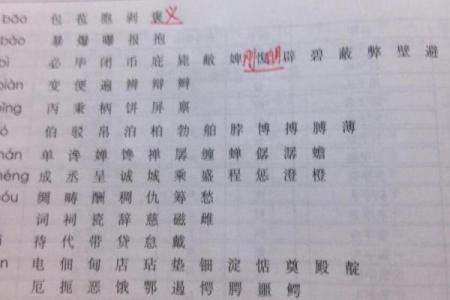 bāo 包 苞 胞 剥 褒 义
bào 暴 爆 曝 报 抱
bì 必 毕 闭 币 庇 陛 敝 婢 刚 愎 明 辟 碧 蔽 弊 壁 避
biàn 变 便 遍 辨 辩 辫
bǐng 丙 秉 柄 饼 屏 禀
ó 伯 驳 帛 泊 柏 勃 舶 脖 博 搏 膊 薄
hán 单 谗 婵 馋 禅 孱 缠 蝉 潺 蟾
héng 成 丞 呈 诚 城 乘 盛 程 惩 澄 橙
óu 绸 畴 酬 稠 仇 筹 愁
词 祠 瓷 辞 慈 磁 雌
待 代 带 贷 怠 戴
电 佃 甸 店 玷 垫 钿 淀 惦 奠 殿 靛
厄 扼 恶 饿 鄂 遏 愕 腭 噩 鳄